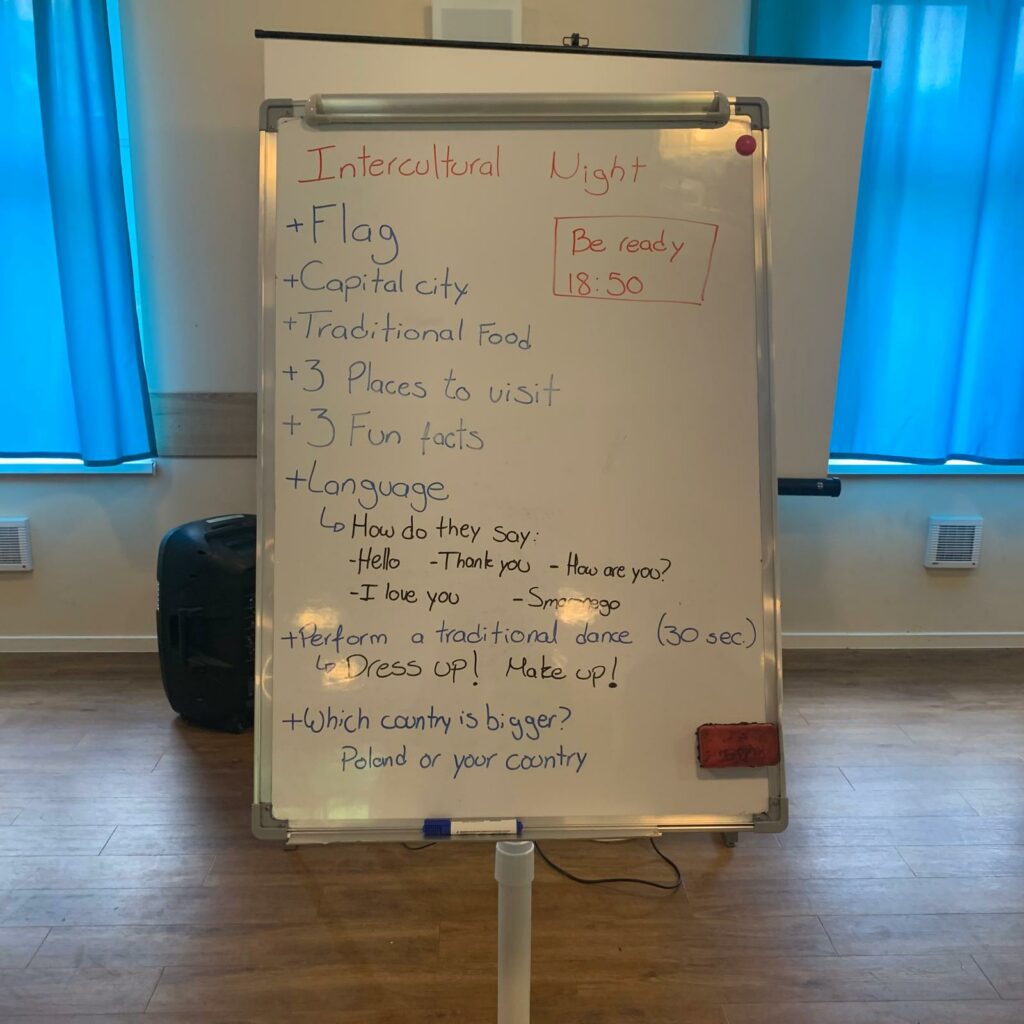 Intercultural Night
+Flag
Be ready
18:50
+Capital city
+Traditional Food
+3 Places to visit
+3 Fun facts
+Language
↳ How do they say:
-Hello -Thank you - How are you?
-I love you - Smacznego
+Perform a traditional dance (30 sec.)
↳ Dress up! Make up!
+Which country is bigger?
Poland or your country